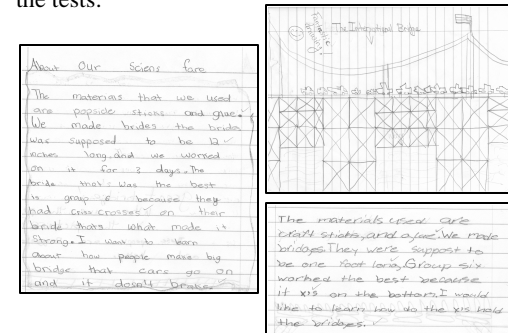 the tests.
About Our Sciens fare
The materials that we used
are popside sticks and glue.
We made brides the bridg
was supposed to be 12
inches long and we worked
on it for 3 days. The
bride that was the best
is group 6 because they
had criss crosses on their
bride thats what made it
strong. I want to learn
about how people make big
bridge that cars go on
and it dosn't brake
Fantastic drawing!
The International Bridge
The materials used are
craft sticks, and glue. We made
bridges. They were suppost to
be one foot long, Group six
worked the best because
it x's on the bottom. I would
like to learn how do the x's hold
the bridges.